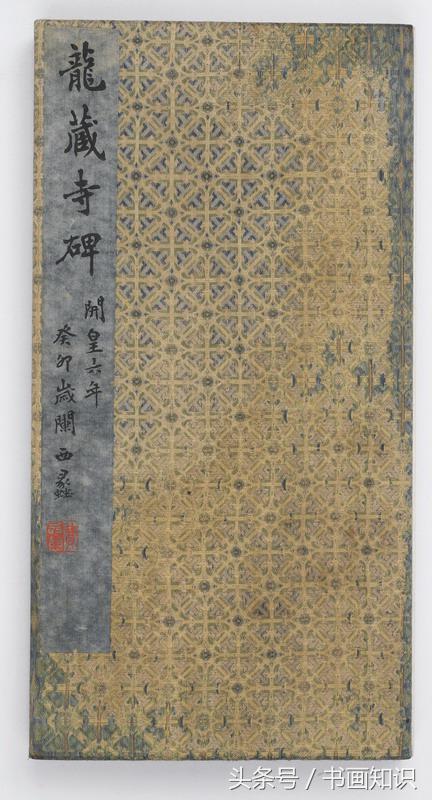 龍藏寺碑
開皇六年
癸卯歲闌西蠡
头条号 / 书画知识